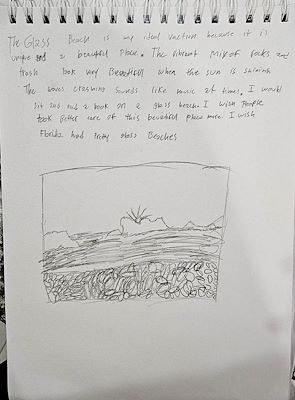 The Glass Beach is my ideal vacation because it is
unique and a beautiful place. The vibrant mix of rocks and
trash look very Beautiful when the sun is shining
The waves crashing sounds like music at times. I would
sit and read a book on a glass beach. I wish People
took Better care of this beautiful place more. I wish
Florida had Pretty glass Beaches